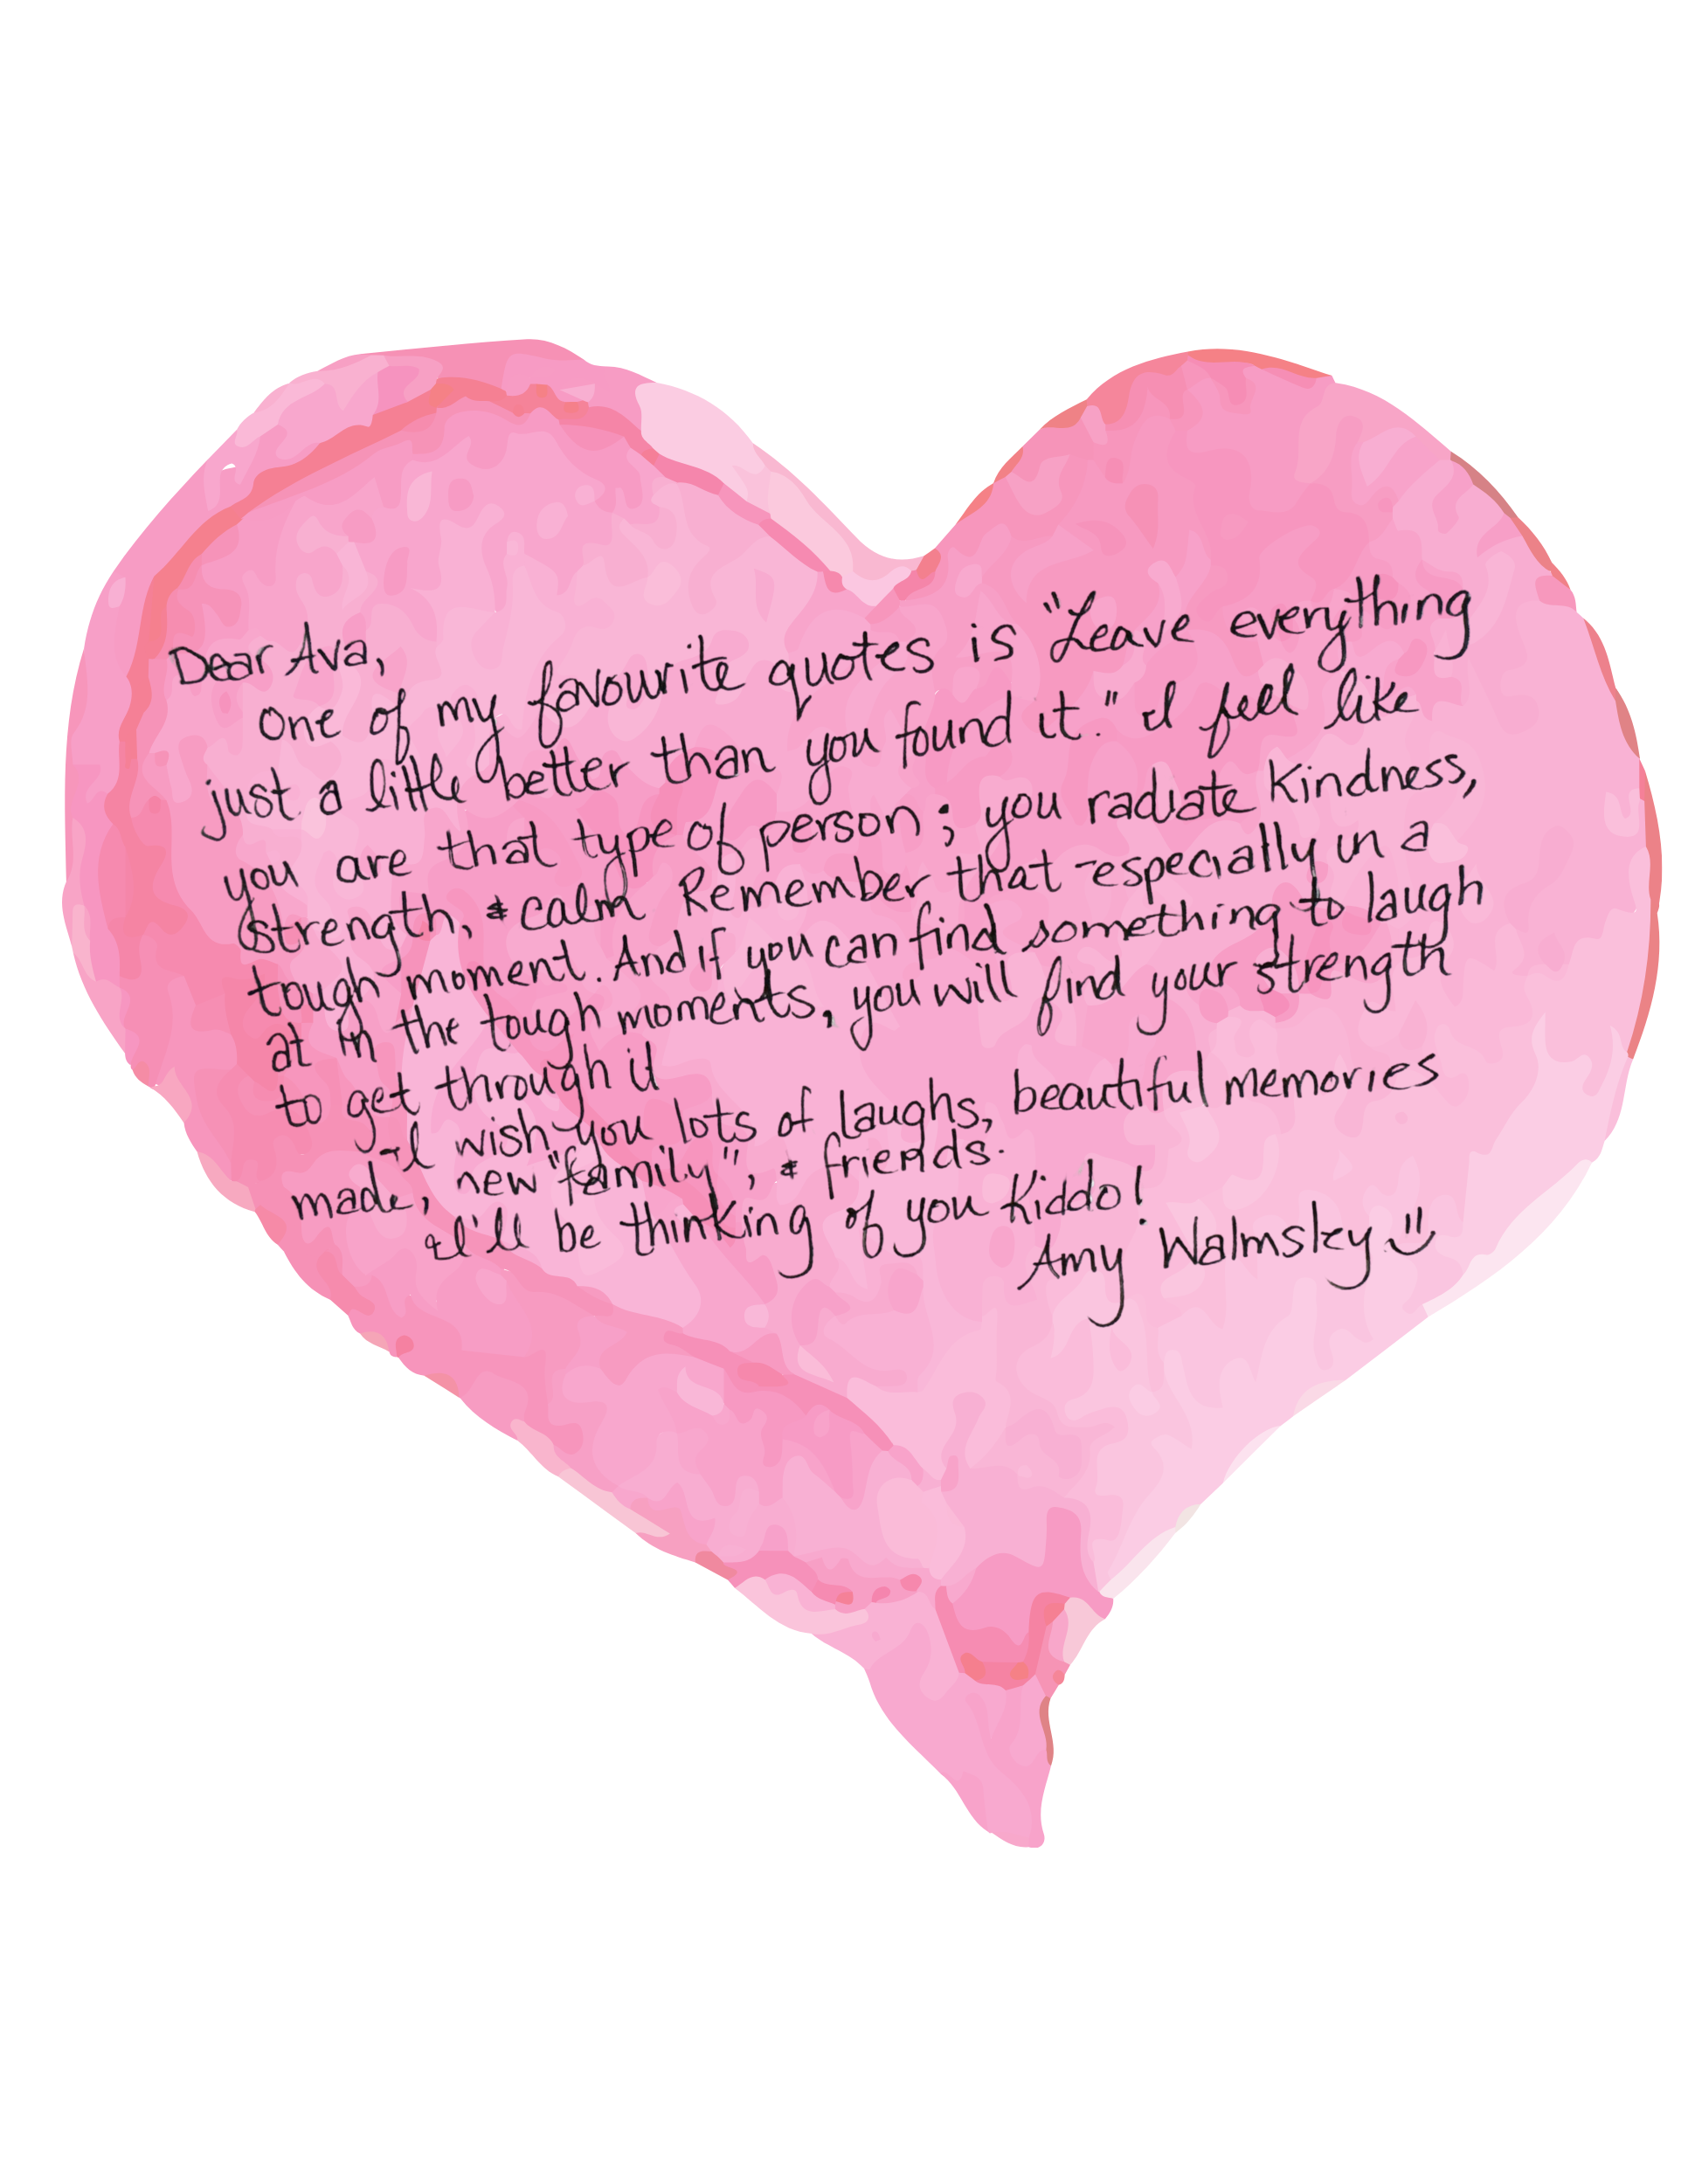 Dear Ava,
One of my favourite quotes is "Leave everything
just a little better than you found it." I feel like
you are that type of person; you radiate kindness,
strength, & calm Remember that - especially in a
tough moment. And if you can find something to laugh
at in the tough moments, you will find your strength
to get through it
I wish you lots of laughs, beautiful memories
made, new "family", & friends.
I'll be thinking of you Kiddo!
Amy Walmsley